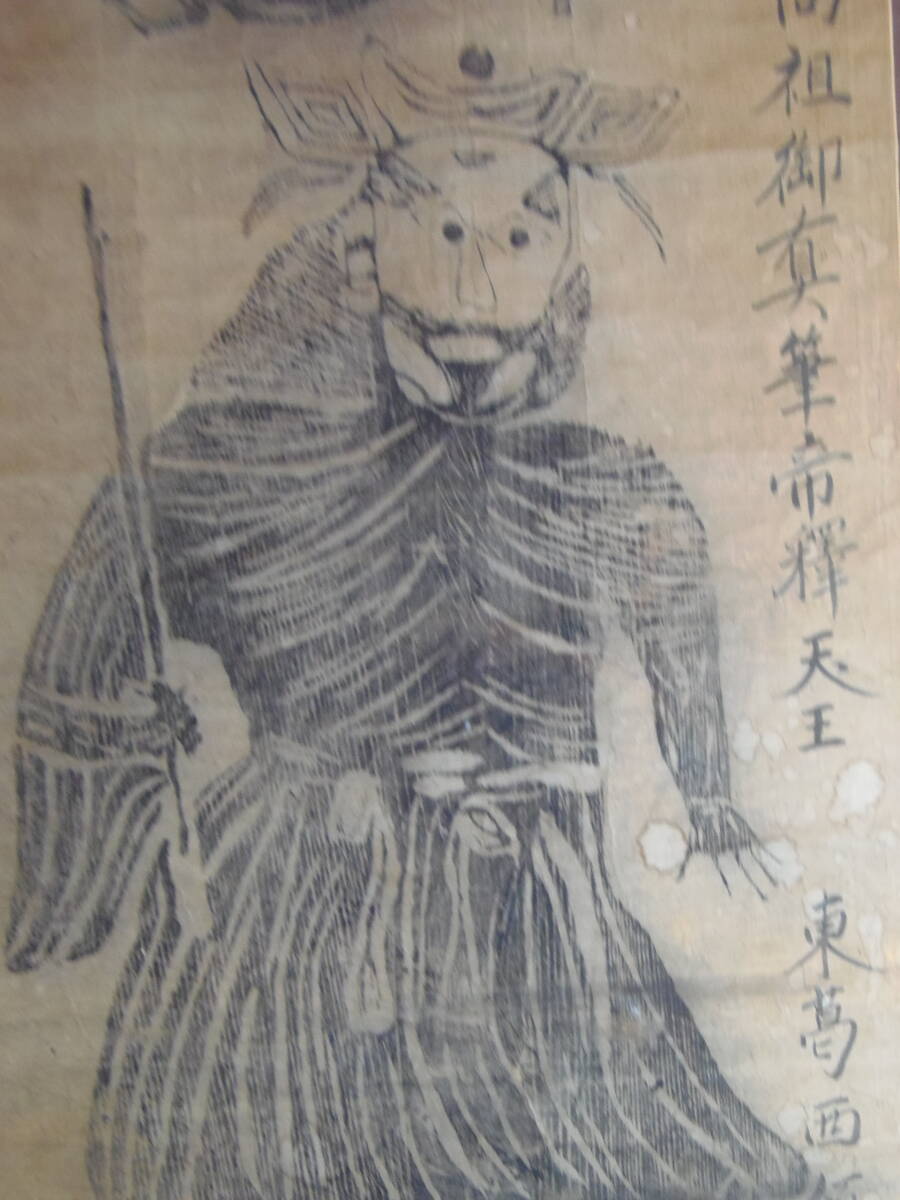 祖御真筆帝釋天王
東葛西